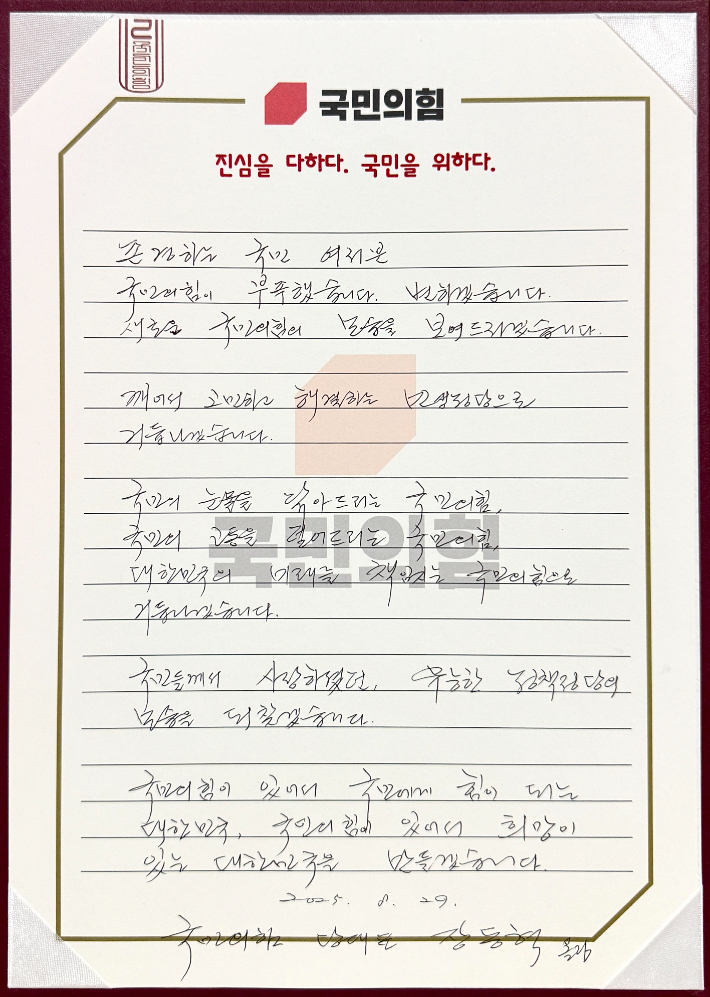 국민의힘
국민의힘
진심을 다하다. 국민을 위하다.
존경하는 국민 여러분
국민의힘이 부족했습니다. 변하겠습니다.
새로운 국민의힘의 모습을 보여드리겠습니다.
깨어서 고민하고 해결하는 민생정당으로
거듭나겠습니다.
국민의 눈물을 닦아드리는 국민의힘,
국민의 고통을 덜어드리는 국민의힘,
대한민국의 미래를 책임지는 국민의힘으로
거듭나겠습니다.
국민의힘
국민들께서 사랑하셨던, 유능한 정책정당의
모습을 되찾겠습니다.
국민의힘이 있어서 국민에게 힘이 되는
대한민국, 국민의힘이 있어서 희망이
있는 대한민국을 만들겠습니다.
2025. 8. 29.
국민의힘 당대표 장동혁 올림